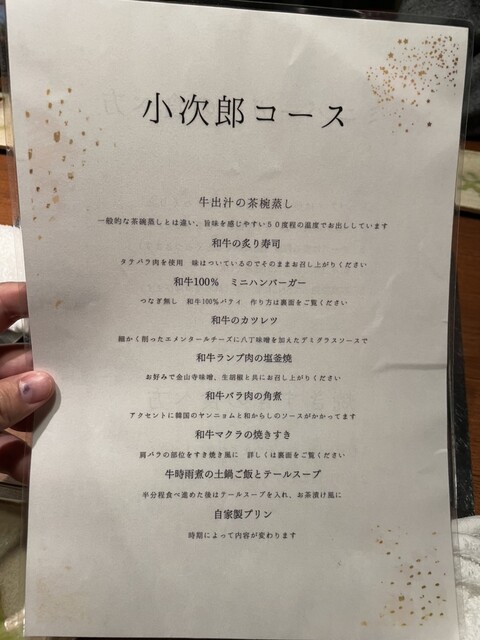 小次郎コース
牛出汁の茶椀蒸し
一般的な茶碗蒸しとは違い、旨味を感じやすい５０度程の温度でお出ししています
和牛の炙り寿司
タテバラ肉を使用　味はついているのでそのままお召し上がりください
和牛100%　ミニハンバーガー
つなぎ無し　和牛100%パティ　作り方は裏面をご覧ください
和牛のカツレツ
細かく削ったエメンタールチーズに八丁味噌を加えたデミグラスソースで
和牛ランプ肉の塩釜焼
お好みで金山寺味噌、生胡椒と共にお召し上がりください
和牛バラ肉の角煮
アクセントに韓国のヤンニョムと和からしのソースがかかってます
和牛マクラの焼きすき
肩バラの部位をすき焼き風に　詳しくは裏面をご覧ください
牛時雨煮の土鍋ご飯とテールスープ
半分程食べ進めた後はテールスープを入れ、お茶漬け風に
自家製プリン
時期によって内容が変わります